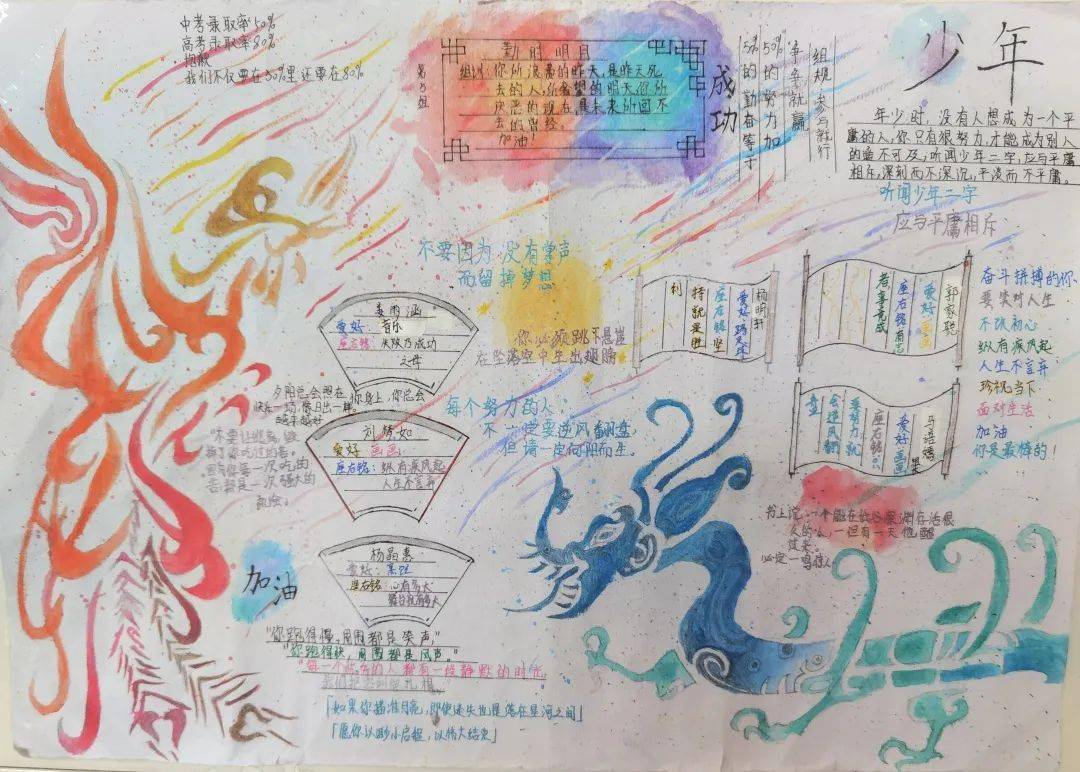 中考录取率50%
高考录取率80%
抱歉
我们不仅要在50%里还要在80%
第5组
勤时明月
组训:你所浪费的昨天,是昨天死
去的人,所奢望的明天,你所
厌恶的现在,是未来所回不
去的曾经。
加油!
成功
50%的努力加
5%的勤奋等于
辛辛就赢
组规:
少年
年少时,没有人想成为一个平
庸的人,你只有很努力,才能成为别人
的遥不可及,听闻少年二字,应与平庸
相斥,深刻而不深沉,平淡而不平庸。
听闻少年二字
应与平庸相斥
不要因为没有掌声
而留掉梦想
你必须跳下悬崖
在坠落空中生出翅膀
每个努力的人
不一定要逆风翻盘,
但请一定向阳而生。
雨涵
爱好:音乐
座右铭:失败乃成功
之母
夕阳总会照在
你身上,你总会
快乐一场,像日出一样。
刘梦如
爱好:画画
座右铭:纵有疾风起
人生不言弃
不要让
杨晶惠
爱好:
座右铭:心有多大
舞台就有多大
杨明轩
爱好:踢足球
座右铭:坚
持就是胜
利
郭家聪
爱好:画画
座右铭:有志
者事竟成
马语嫣
爱好:画画
座右铭:只
要努力就
会逆风翻
盘
奋斗拼搏的你
要笑对人生
不改初心
纵有疾风起
人生不言弃
珍视当下
面对生活
加油
你是最棒的!
书上说:一个能在低谷深渊存活很
久的人,一但有一天他醒
过来。
必定一鸣惊人
加油
"你跑得慢,周围都是笑声,"
"你跑得快,周围都是风声。"
"每一个优秀的人都有一段静默的时光,
「如果你瞄准月亮,即使迷失也是落在星河之间」
「愿你以渺小启程,以伟大结束」